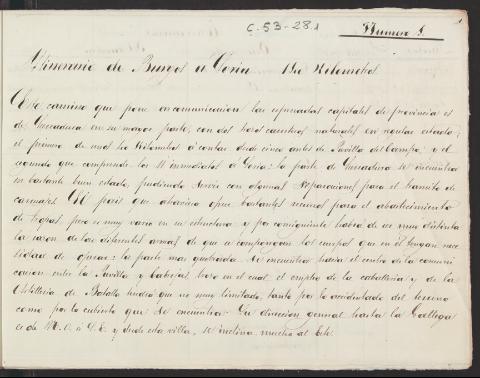 C-53-28.1
Numero 8.
Itinerario de Burgos a Soria 134 Kilometros
Este camino que pone en comunicacion las espresadas capitales de provincia es
de herradura en su mayor parte, con dos trozos carreteros naturales en regular estado;
el primero de unos Kilometros a contar desde cinco antes de Revilla del Campo; y el
segundo que comprende los 11 inmediatos a Soria: la parte de herradura se encuentra
en bastante buen estado, pudiendo servir con algunas reparaciones para el transito de
carruajes. El pais que atraviesa ofrece bastantes recursos para el abastecimiento
de tropas, pero es muy vario en su estructura y por consiguiente habrá de ser muy distinta
la accion de las diferentes armas de que se compongan los cuerpos que en él tengan nece
sidad de operar: la parte mas quebrada se encuentra hacia el centro de la comuni
cacion entre la Revilla y Cabrejas, trozo en el cual el empleo de la caballeria y de la
Artilleria de Batalla tendrá que ser muy limitado, tanto por lo accidentado del terreno
como por lo cubierto que se encuentra. La direccion general hasta la Gallega
es de N.O. á S.E. y desde esta villa, se inclina mucho al Este.